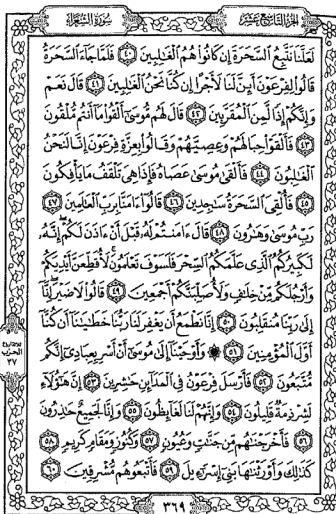 الجزء التاسع عشر
سورة الشعراء
لَعَلَّنَا نَتَّبِعُ السَّحَرَةَ إِن كَانُوا هُمُ الْغَٰلِبِينَ ﴿٤٠﴾ فَلَمَّا جَاءَ السَّحَرَةُ
قَالُوا لِفِرْعَوْنَ أَئِنَّ لَنَا لَأَجْرًا إِن كُنَّا نَحْنُ الْغَٰلِبِينَ ﴿٤١﴾ قَالَ نَعَمْ
وَإِنَّكُمْ إِذًا لَّمِنَ الْمُقَرَّبِينَ ﴿٤٢﴾ قَالَ لَهُم مُّوسَىٰ أَلْقُوا مَا أَنتُم مُّلْقُونَ
﴿٤٣﴾ فَأَلْقَوْا حِبَالَهُمْ وَعِصِيَّهُمْ وَقَالُوا بِعِزَّةِ فِرْعَوْنَ إِنَّا لَنَحْنُ
الْغَٰلِبُونَ ﴿٤٤﴾ فَأَلْقَىٰ مُوسَىٰ عَصَاهُ فَإِذَا هِيَ تَلْقَفُ مَا يَأْفِكُونَ
﴿٤٥﴾ فَأُلْقِيَ السَّحَرَةُ سَٰجِدِينَ ﴿٤٦﴾ قَالُوا ءَامَنَّا بِرَبِّ الْعَٰلَمِينَ ﴿٤٧﴾
رَبِّ مُوسَىٰ وَهَٰرُونَ ﴿٤٨﴾ قَالَ ءَامَنتُمْ لَهُ قَبْلَ أَنْ ءَاذَنَ لَكُمْ إِنَّهُ
لَكَبِيرُكُمُ الَّذِي عَلَّمَكُمُ السِّحْرَ فَلَسَوْفَ تَعْلَمُونَ لَأُقَطِّعَنَّ أَيْدِيَكُمْ
وَأَرْجُلَكُم مِّنْ خِلَٰفٍ وَلَأُصَلِّبَنَّكُمْ أَجْمَعِينَ ﴿٤٩﴾ قَالُوا لَا ضَيْرَ إِنَّا
إِلَىٰ رَبِّنَا مُنقَلِبُونَ ﴿٥٠﴾ إِنَّا نَطْمَعُ أَن يَغْفِرَ لَنَا رَبُّنَا خَطَٰيَٰنَا أَن كُنَّا
أَوَّلَ الْمُؤْمِنِينَ ﴿٥١﴾ ۞ وَأَوْحَيْنَا إِلَىٰ مُوسَىٰ أَنْ أَسْرِ بِعِبَادِي إِنَّكُم
مُّتَّبَعُونَ ﴿٥٢﴾ فَأَرْسَلَ فِرْعَوْنُ فِي الْمَدَائِنِ حَٰشِرِينَ ﴿٥٣﴾ إِنَّ هَٰؤُلَاءِ
لَشِرْذِمَةٌ قَلِيلُونَ ﴿٥٤﴾ وَإِنَّهُمْ لَنَا لَغَائِظُونَ ﴿٥٥﴾ وَإِنَّا لَجَمِيعٌ حَٰذِرُونَ
﴿٥٦﴾ فَأَخْرَجْنَٰهُم مِّن جَنَّٰتٍ وَعُيُونٍ ﴿٥٧﴾ وَكُنُوزٍ وَمَقَامٍ كَرِيمٍ ﴿٥٨﴾
كَذَٰلِكَ وَأَوْرَثْنَٰهَا بَنِي إِسْرَٰءِيلَ ﴿٥٩﴾ فَأَتْبَعُوهُم مُّشْرِقِينَ ﴿٦٠﴾
الحزب
٣٧
٣٦٩